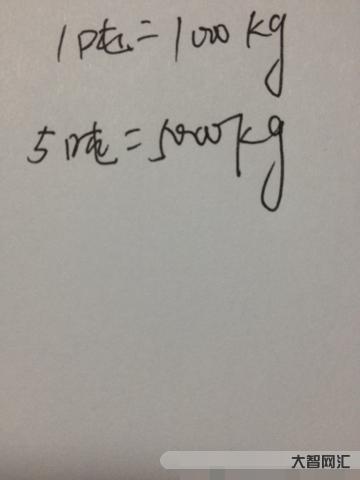 1吨=1000kg
5吨=5000kg
大智网汇